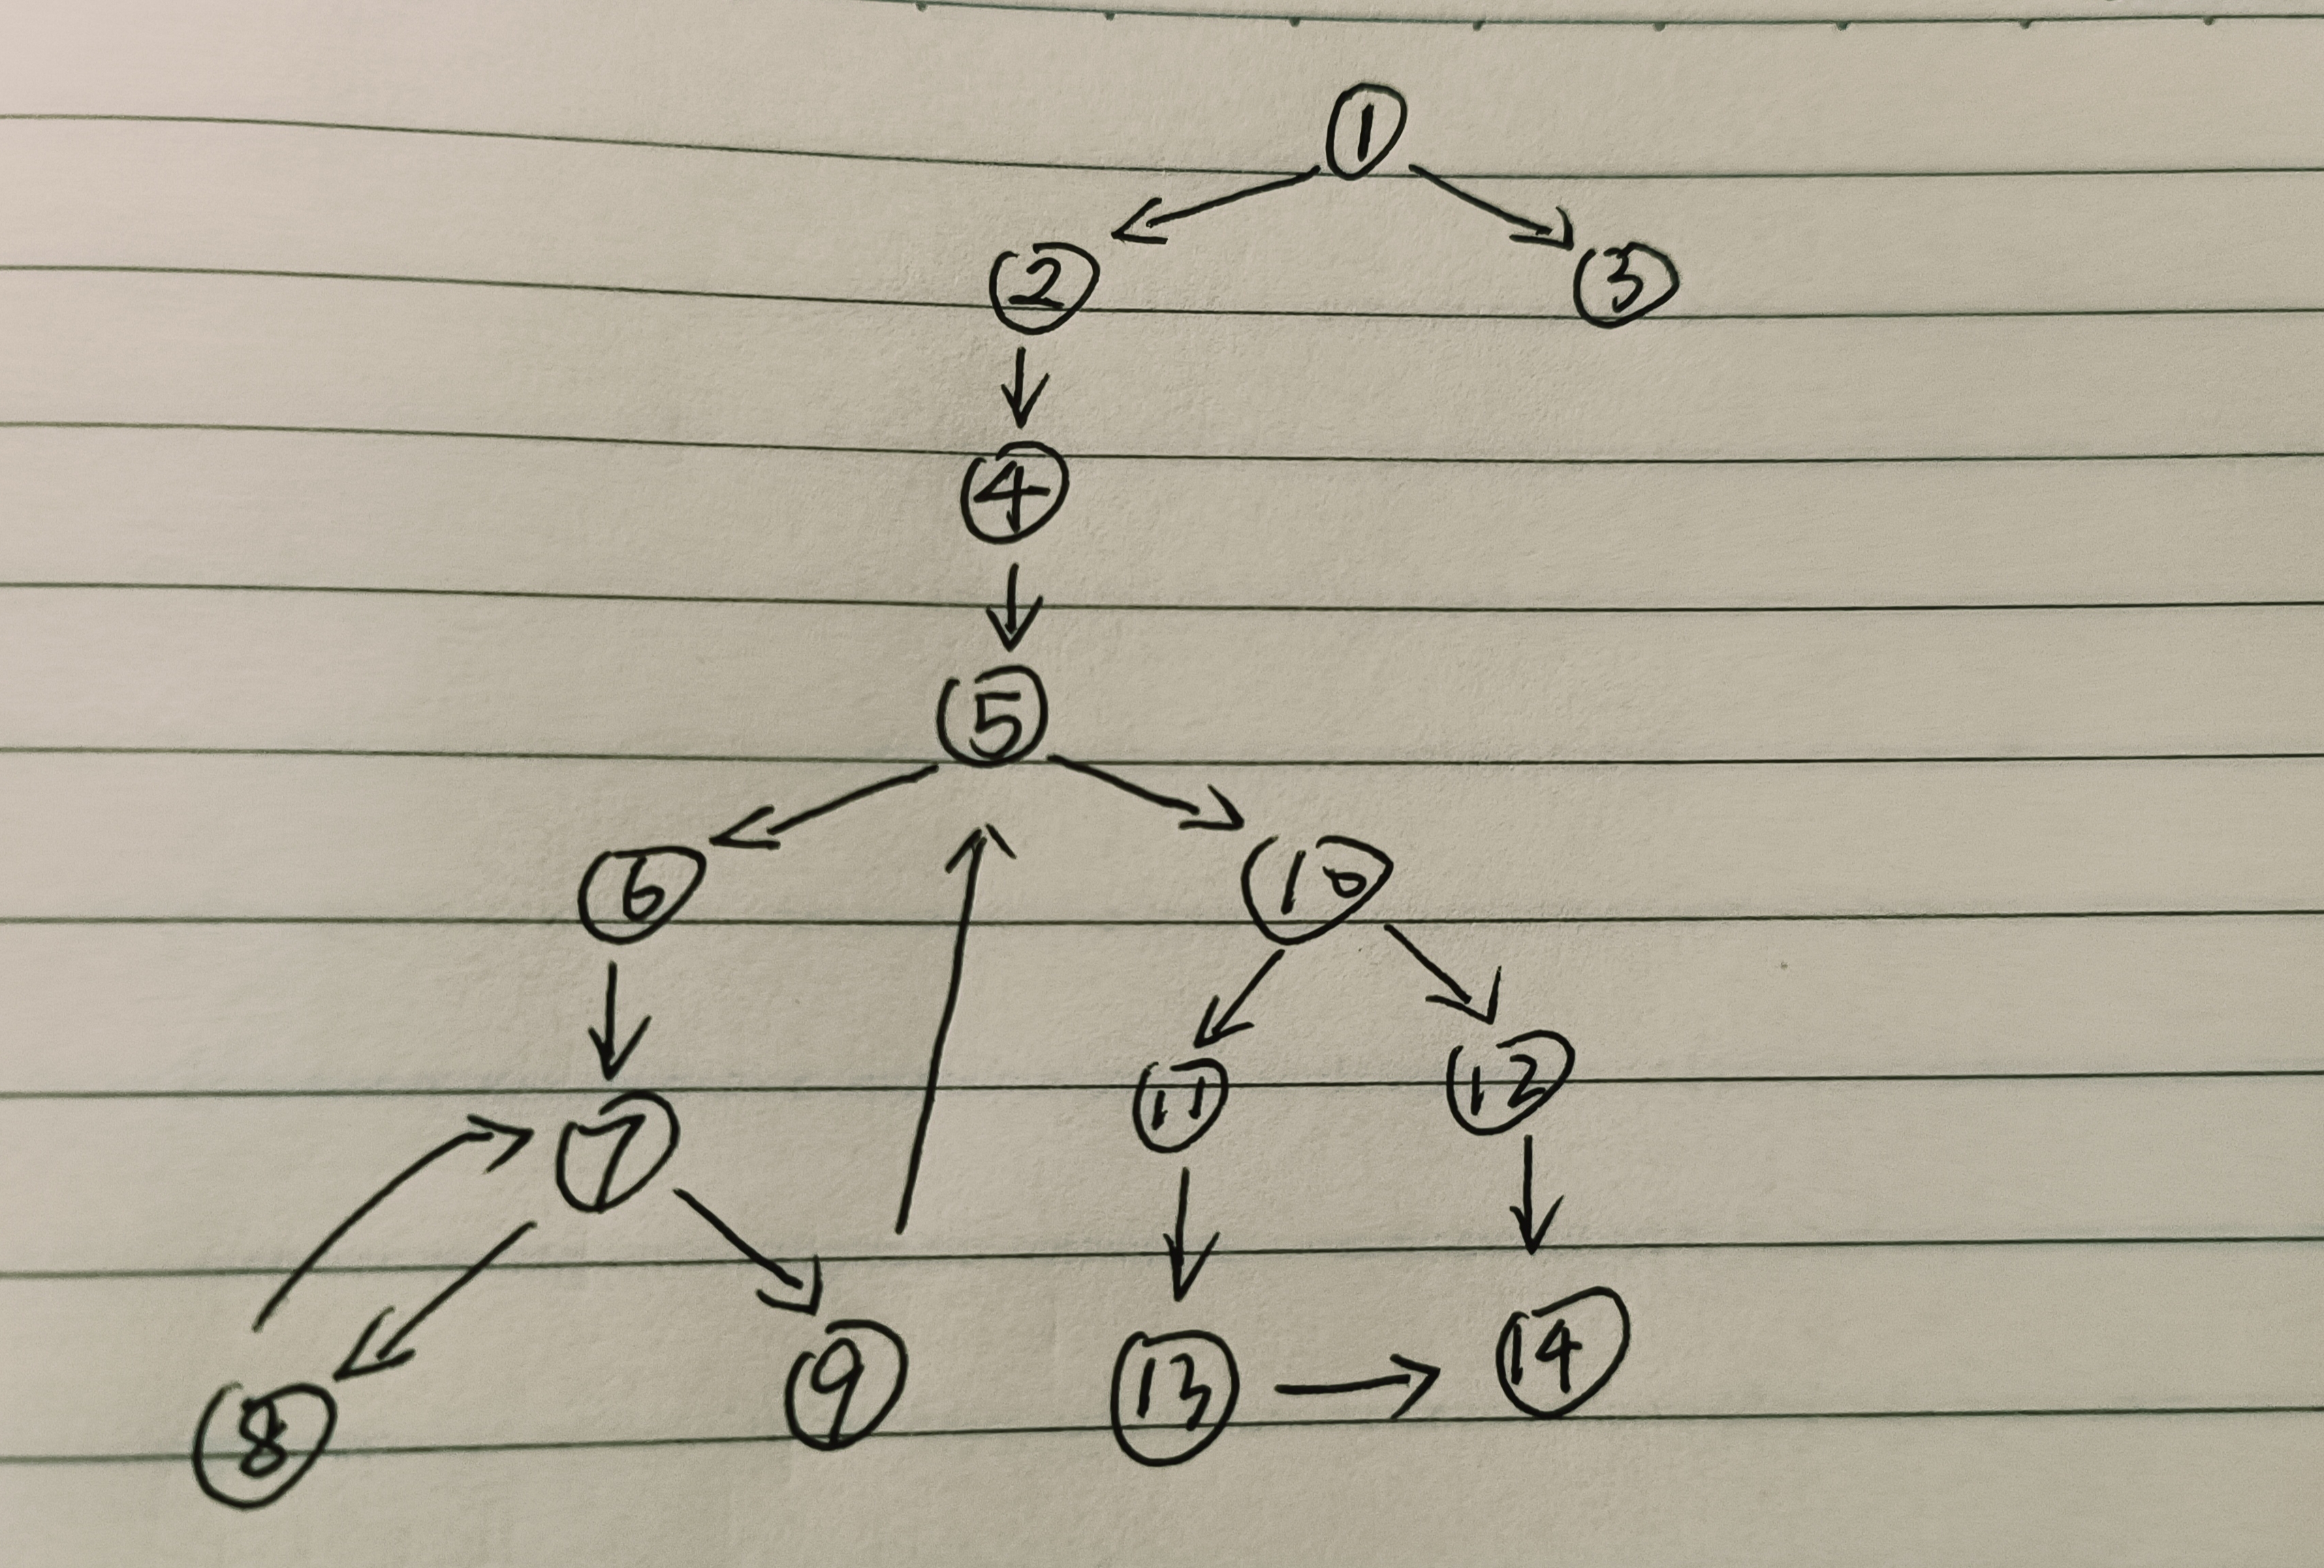 1
2 3
4
5
6 10
7 11 12
8 9 13 14